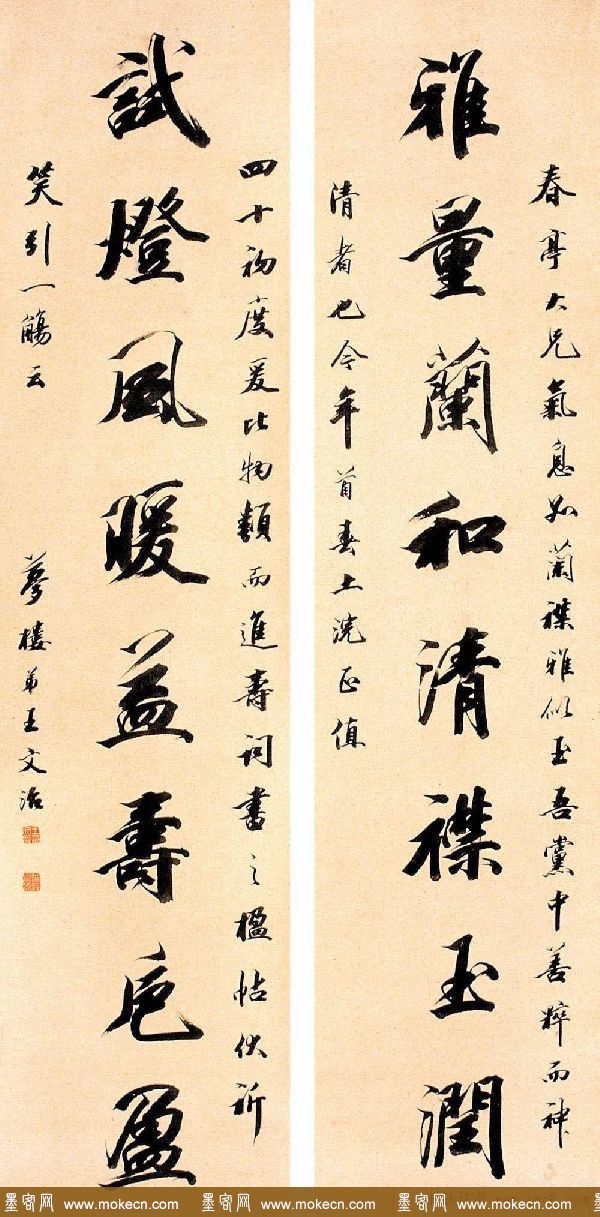 春亭大兄氣息如蘭襟雅似玉吾黨中善粹而神
雅量蘭和清襟玉潤
清者也今年首春上浣正值
四十初度爰比物類而進壽詞書之楹帖伏祈
試燈風暖益壽卮盈
笑引一觴云 夢樓弟王文治
墨客网 www.mokecn.com 墨客网 www.mokecn.com 墨客网 www.mokecn.com